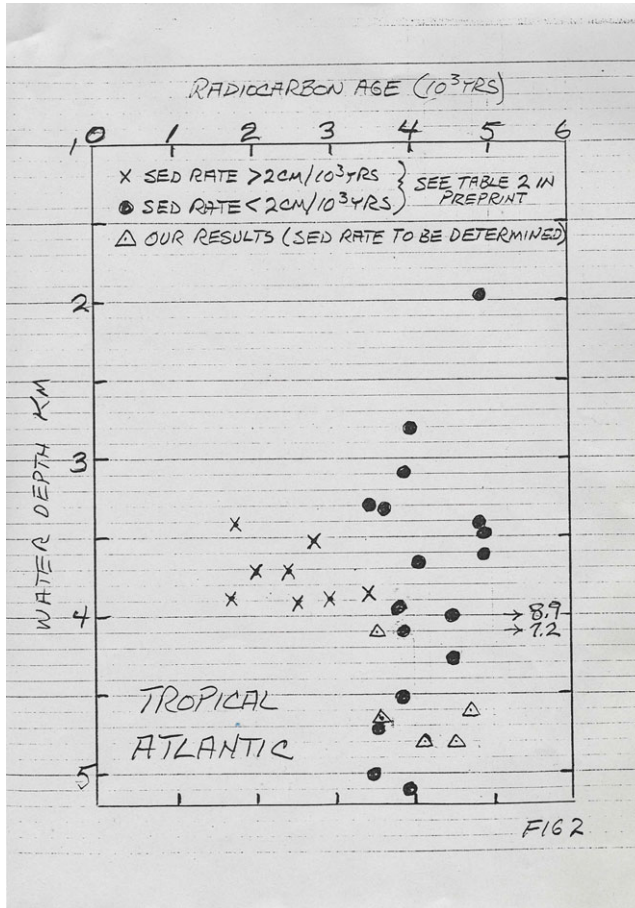 RADIOCARBON AGE (10³ YRS)
0 1 2 3 4 5 6
1
X SED RATE >2CM/10³YRS
● SED RATE <2CM/10³YRS
} SEE TABLE 2 IN
PREPRINT
△ OUR RESULTS (SED RATE TO BE DETERMINED)
2
3
WATER DEPTH KM
4
→ 8.9
→ 7.2
TROPICAL
ATLANTIC
5
FIG 2